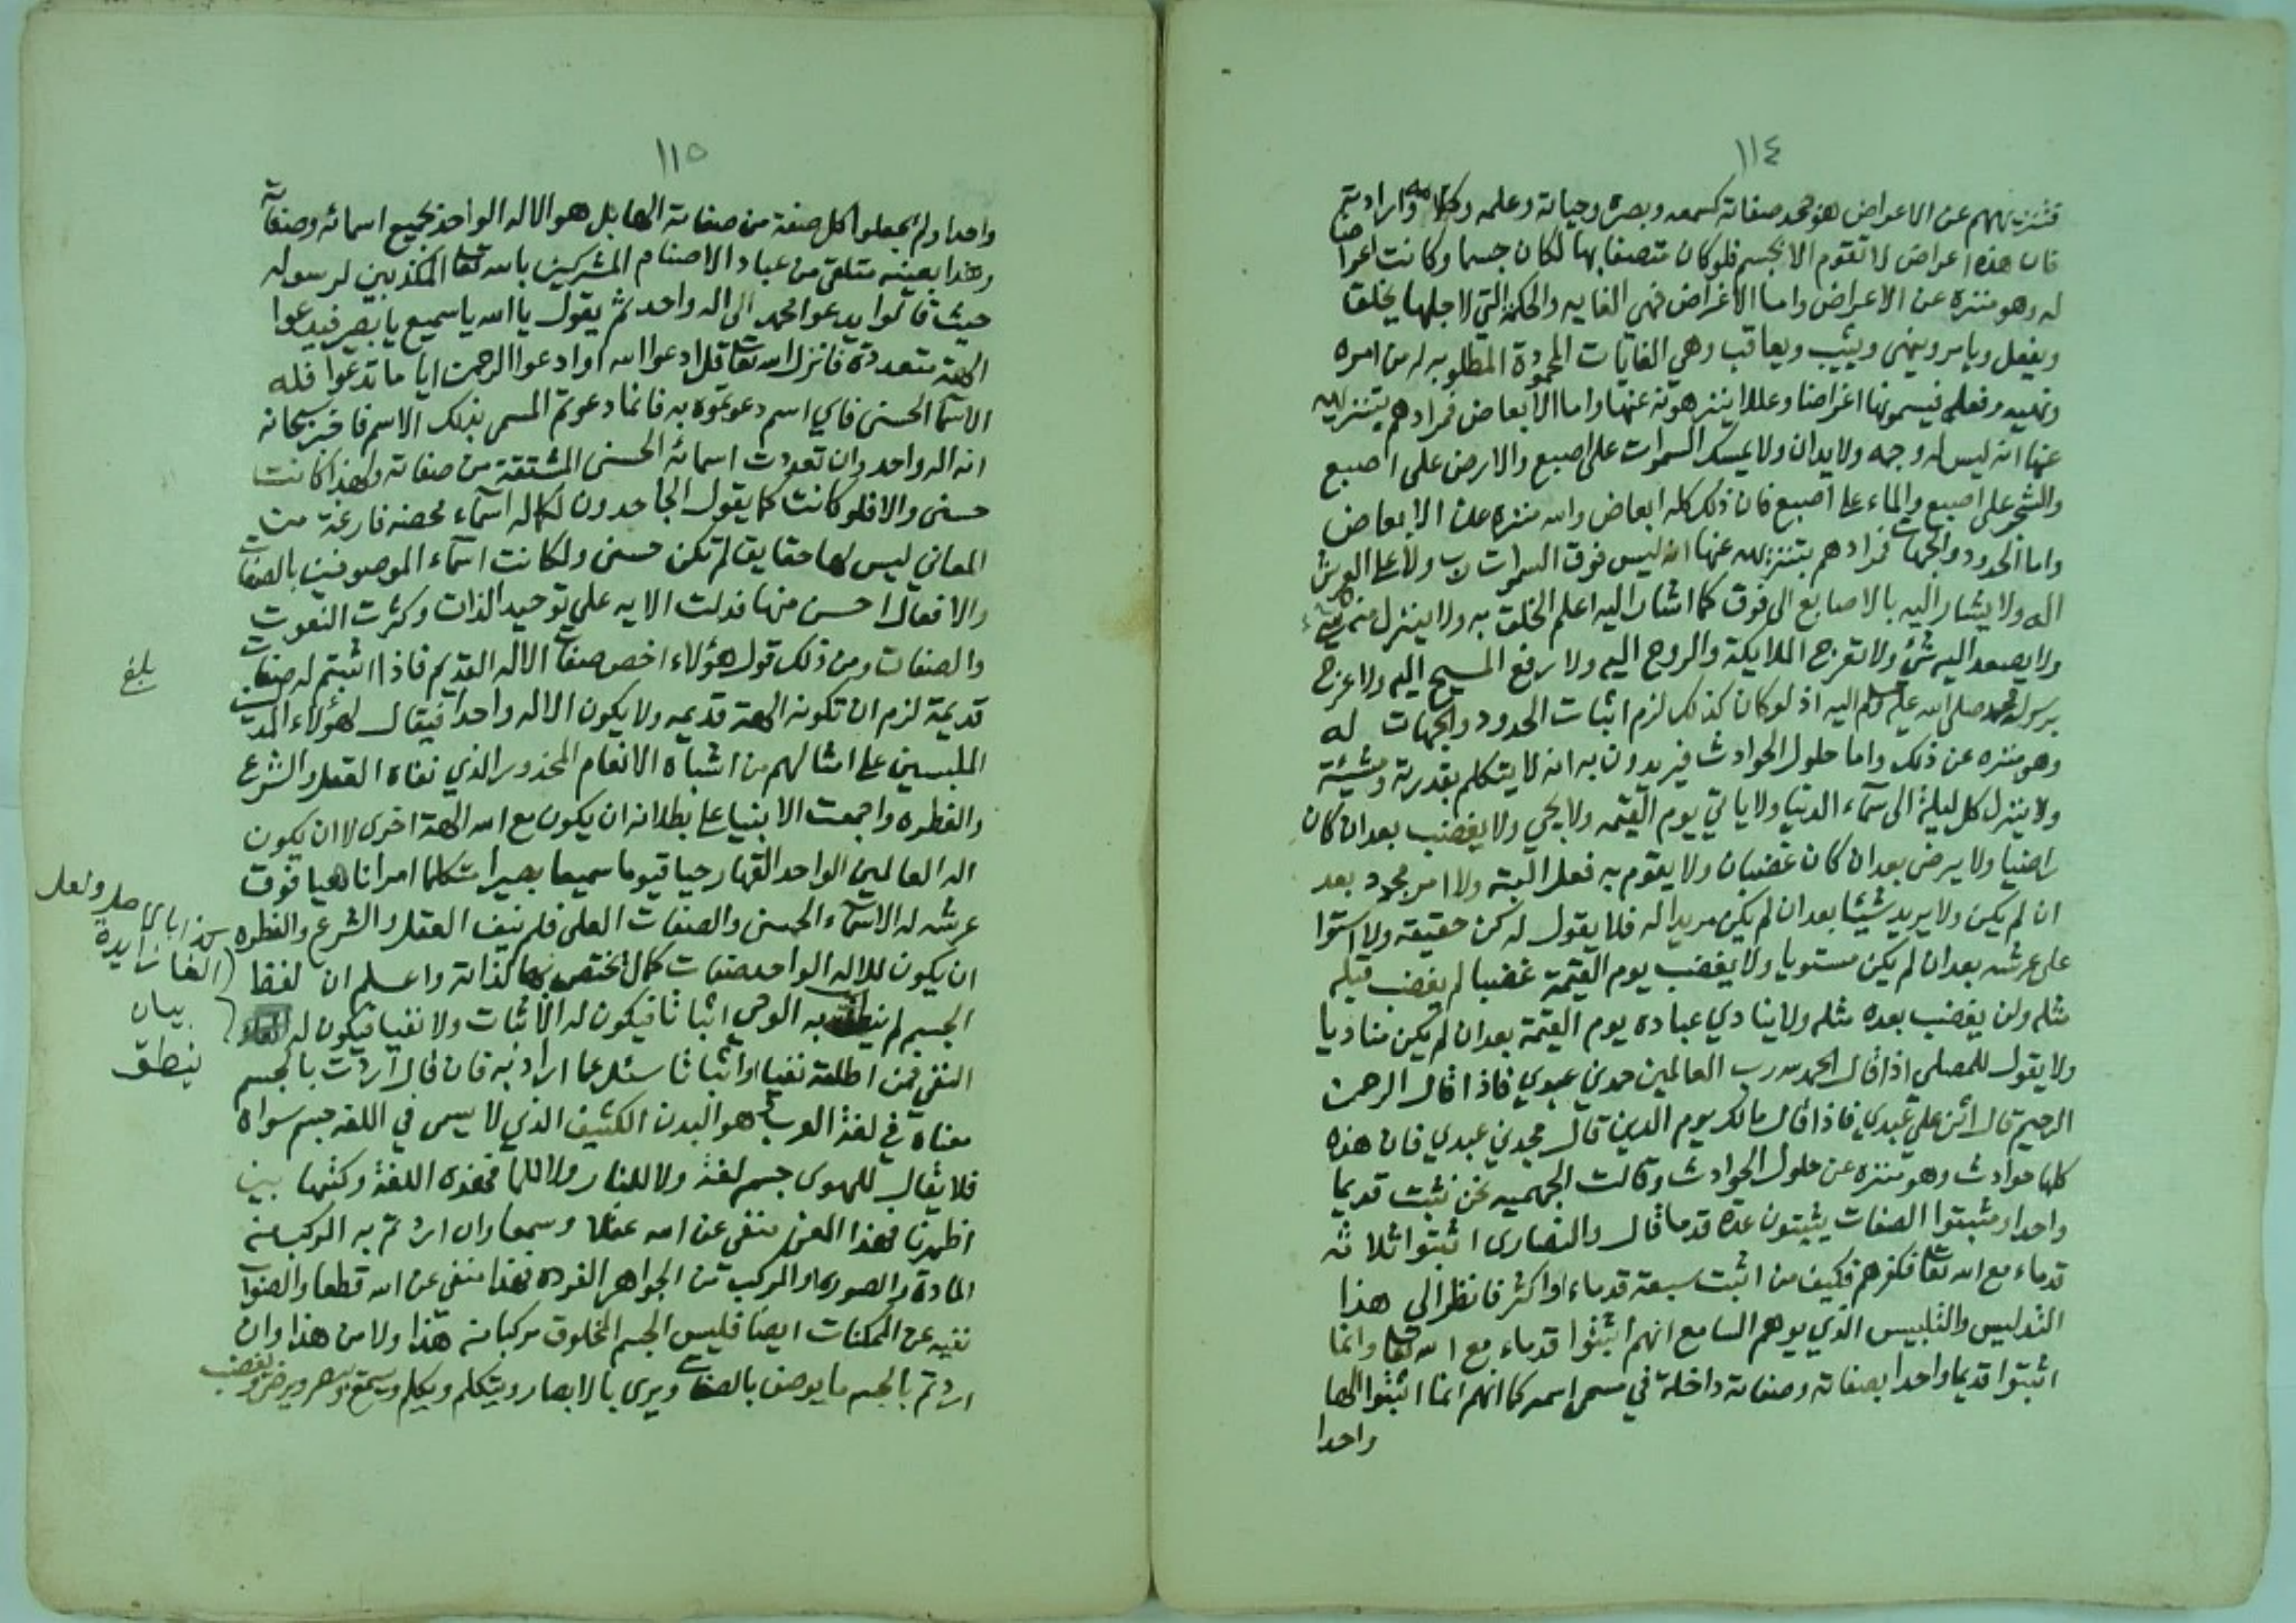 ١١٤
فتنزيههم عن الاعراض هو جحد صفاته كسمعه وبصره وحياته وعلمه وكلامه وارادته
فان هذه اعراض لا تقوم الا بجسم فلو كان متصفا بها لكان جسما وكانت اعراضا
له وهو منزه عن الاعراض واما الاغراض فهي الغايه والحكمة التي لاجلها يخلق
ويفعل ويامر وينهى ويثيب ويعاقب وهي الغايات المحمودة المطلوبه له من امره
ونهيه وفعله فيسمونها اغراضا وعللا ينزهونه عنها واما الابعاض فمرادهم بتنزيهه
عنها انه ليس له وجه ولا يدان ولا يمسك السموات على اصبع والارض على اصبع
والشجر على اصبع والماء على اصبع فان ذلك كله ابعاض والله منزه عن الابعاض
واما الحدود والجهات فمرادهم بتنزيهه عنها انه ليس فوق السموات رب ولا على العرش
اله ولا يشار اليه بالاصابع الى فوق كما اشار اليه اعلم الخلق به ولا ينزل منه شيء
ولا يصعد اليه شئ ولا تعرج الملايكة والروح اليه ولا رفع المسيح اليه ولا عرج
برسوله محمد صلى الله عليه وسلم اليه اذ لو كان كذلك لزم اثبات الحدود والجهات له
وهو منزه عن ذلك واما حلول الحوادث فيريدون به انه لا يتكلم بقدرته ومشيئته
ولا ينزل كل ليلة الى سماء الدنيا ولا ياتي يوم القيمه ولا يجي ولا يغضب بعد ان كان
راضيا ولا يرضى بعد ان كان غضبان ولا يقوم به فعل البتة ولا امر مجدد بعد
ان لم يكن ولا يريد شيئا بعد ان لم يكن مريدا له فلا يقول له كن حقيقه ولا استوا
على عرشه بعد ان لم يكن مستويا ولا يغضب يوم القيمة غضبا لم يغضب قبله
مثله ولن يغضب بعده مثله ولا ينادي عباده يوم القيمة بعد ان لم يكن مناديا
ولا يقول للمصلي اذا قال الحمد لله رب العالمين حمدني عبدي فاذا قال الرحمن
الرحيم قال اثنى علي عبدي فاذا قال مالك يوم الدين قال مجدني عبدي فان هذه
كلها حوادث وهو منزه عن حلول الحوادث وقالت الجهميه نحن نثبت قديما
واحدا ومثبتوا الصفات يثبتون عدة قدما قال والنصارى اثبتوا ثلاثة
قدماء مع الله تعا فكفرهم فكيف من اثبت سبعة قدماء او اكثر فانظر الى هذا
التدليس والتلبيس الذي يوهم السامع انهم اثبتوا قدماء مع الله تعا وانما
اثبتوا قديما واحدا بصفاته وصفاته داخلة في مسمى اسمه كما انهم انما اثبتوا الها
واحدا
١١٥
واحدا ولم يجعلوا كل صفة من صفاته الها بل هو الاله الواحد بجميع اسمائه وصفاته
وهذا بعينه متلقى من عباد الاصنام المشركين بالله تعا المكذبين لرسوله
حيث قالوا يدعوا محمد الى اله واحد ثم يقول يا الله يا سميع يا بصير فيدعوا
الهة متعددة فانزل الله تعا قل ادعوا الله او ادعوا الرحمن ايا ما تدعوا فله
الاسما الحسنى فاي اسم دعوتموه به فانما دعوتم المسمى بذلك الاسم فاخبر سبحانه
انه اله واحد وان تعددت اسمائه الحسنى المشتقة من صفاته ولهذا كانت
حسنى والا فلو كانت كما يقول الجاحدون لكماله اسماء محضه فارغة من
المعاني ليس لها حقايق لم تكن حسنى ولكانت اسماء الموصوفين بالصفات
والافعال احسن منها فدلت الايه على توحيد الذات وكثرت النعوت
والصفات ومن ذلك قول هؤلاء اخص صفات الاله القديم فاذا اثبتم له صفات
قديمة لزم ان تكون الهة قديمه ولا يكون الاله واحدا فيقال لهؤلاء المدلسين
بلغ
الملبسين على امثالهم من اشباه الانعام المحذور الذي نفاه العقل والشرع
والفطره واجمعت الانبيا على بطلانه ان يكون مع الله الهة اخرى لا ان يكون
اله العالمين الواحد القهار حيا قيوما سميعا بصيرا متكلما امرا ناهيا فوق
عرشه له الاسماء الحسنى والصفات العلى فلم ينف العقل والشرع والفطره
ان يكون للاله الواحد صفات كمال يختص بها لذاته واعلم ان لفظ
الجسم لم ينطق به الوحي اثباتا فيكون له الاثبات ولا نفيا فيكون له
النفي فمن اطلقه نفيا او اثباتا سئل عما اراد به فان قال اردت بالجسم
معناه في لغة العرب هو البدن الكثيف الذي لا يسمى في اللغه جسم سواه
فلا يقال للهوى جسم لغة ولا للنار ولا للما فهذه اللغة وكتبها بين
اظهرنا فهذا المعنى منفي عن الله عقلا وسمعا وان اردتم به المركب من
المادة والصوره او المركب من الجواهر الفرده فهذا منفي عن الله قطعا والصواب
نفيه عن الممكنات ايضا فليس الجسم المخلوق مركبا من هذا ولا من هذا وان
اردتم بالجسم ما يوصف بالصفات ويرى بالابصار ويتكلم ويكلم ويسمع ويبصر ويرضى ويغضب
الفا زايدة
بيان
ينطق